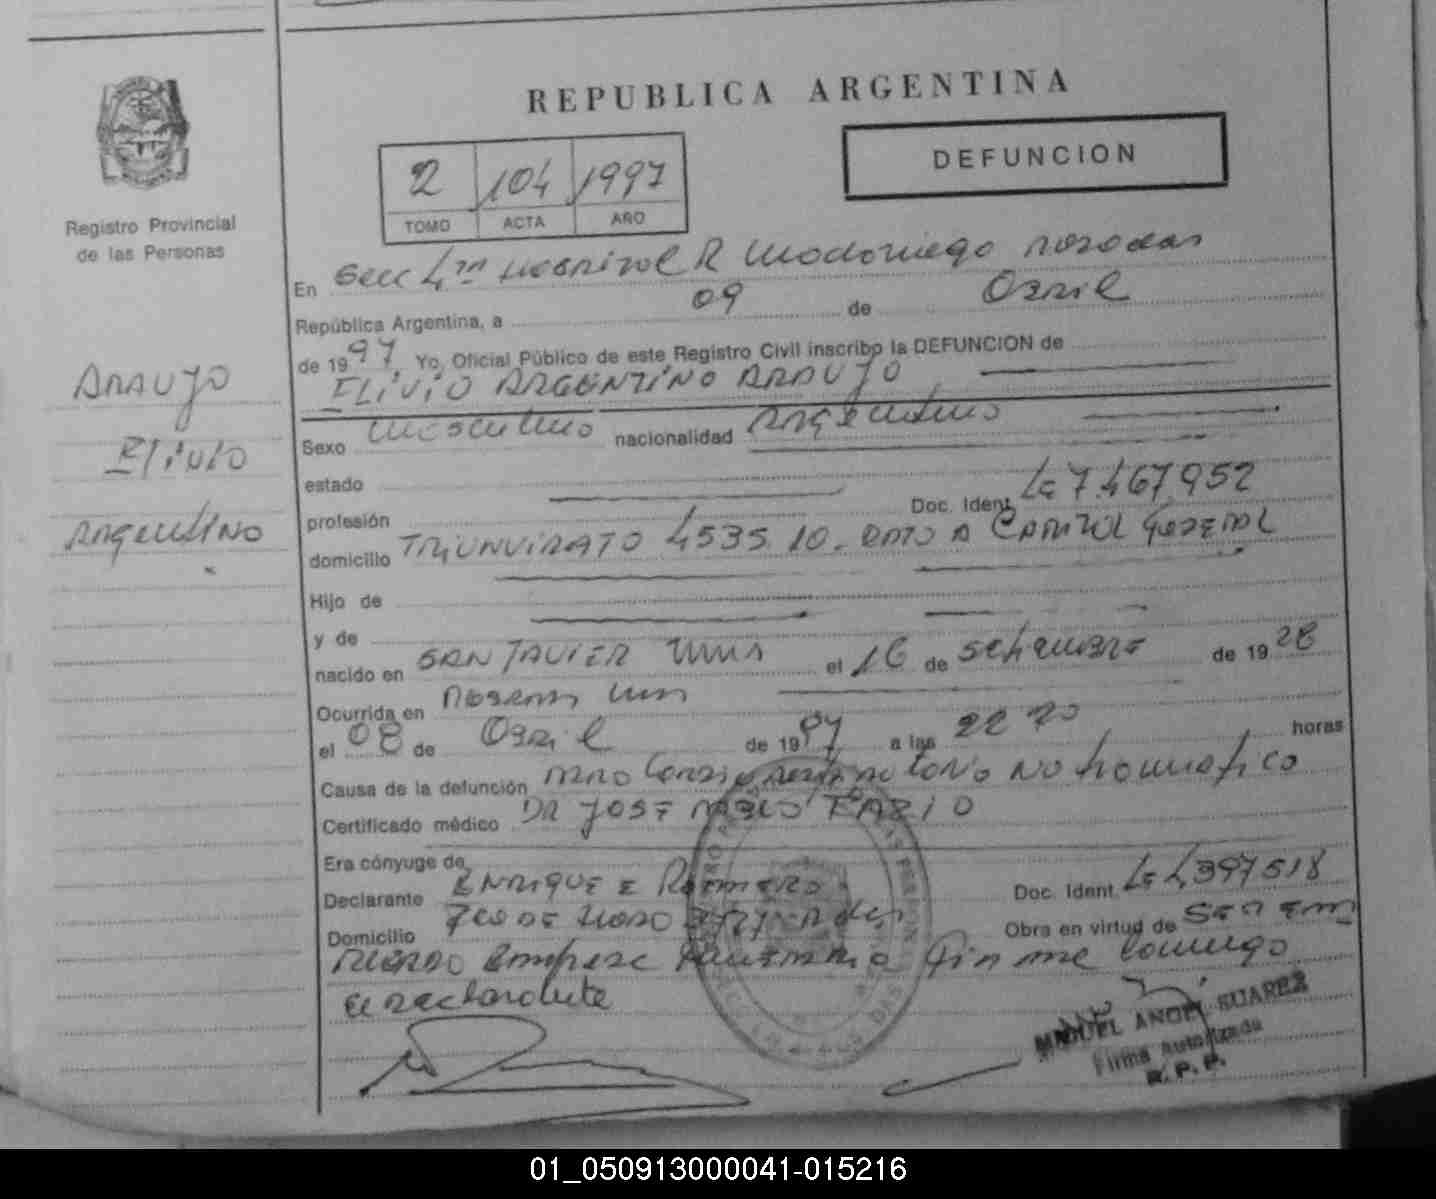 REPUBLICA ARGENTINA
DEFUNCION
2 104 1997
TOMO ACTA AÑO
Registro Provincial
de las Personas
ARAUJO
Elivio
Argentino
En Secc 4ta Hospital R Posadas
República Argentina, a 09 de Abril
de 1997, Yo, Oficial Público de este Registro Civil inscribo la DEFUNCION de
ELIVIO ARGENTINO ARAUJO
Sexo masculino nacionalidad Argentino
estado
profesión Doc. Ident. LE 7.467.952
domicilio TRIUNVIRATO 4535 10. DPTO A CAPITAL FEDERAL
Hijo de
y de
nacido en SAN JAVIER MNS el 16 de setiembre de 1928
Ocurrida en Posadas Mns
el 08 de Abril de 1997 a las 22 20 horas
Causa de la defunción paro cardiorrespiratorio no traumático
Certificado médico DR JOSE FAZIO
Era cónyuge de
Declarante ENRIQUE E ROMERO Doc. Ident. LE 4397518
Domicilio Obra en virtud de ser
firma conmigo
el declarante
MIGUEL ANGEL SUAREZ
Firma Autorizada
R. P. P.
01_050913000041-015216